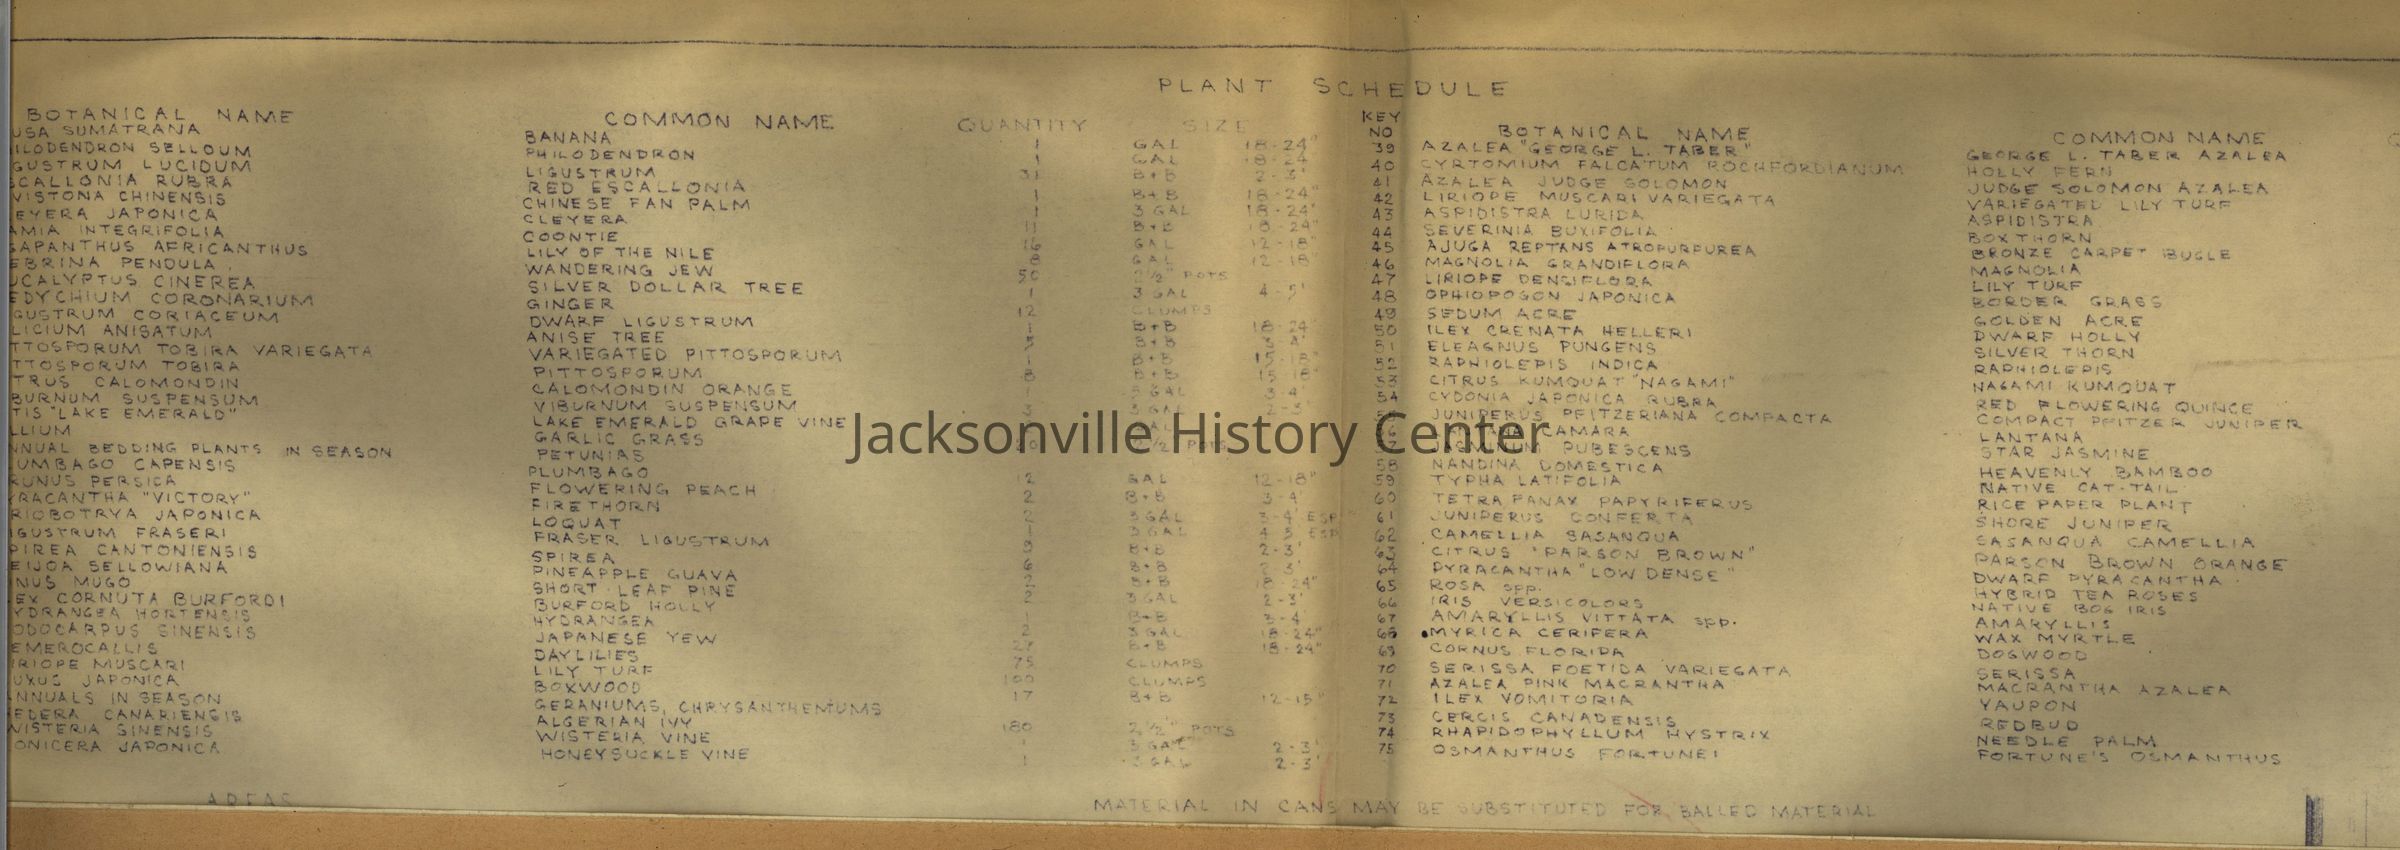 PLANT SCHEDULE
BOTANICAL NAME COMMON NAME QUANTITY SIZE
USA SUMATRANA BANANA 1 GAL 18-24"
ILODENDRON SELLOUM PHILODENDRON 1 GAL 18-24"
GUSTRUM LUCIDUM LIGUSTRUM 31 B+B 2-3'
SCALLONIA RUBRA RED ESCALLONIA 1 B+B 18-24"
VISTONA CHINENSIS CHINESE FAN PALM 1 3 GAL 18-24"
EYERA JAPONICA CLEYERA 11 B+B 18-24"
AMIA INTEGRIFOLIA COONTIE 16 GAL 12-18"
GAPANTHUS AFRICANTHUS LILY OF THE NILE 8 GAL 12-18"
EBRINA PENDULA WANDERING JEW 50 2½" POTS
UCALYPTUS CINEREA SILVER DOLLAR TREE 1 3 GAL 4-5'
EDYCHIUM CORONARIUM GINGER 12 CLUMPS
GUSTRUM CORIACEUM DWARF LIGUSTRUM 1 B+B 18-24"
LICIUM ANISATUM ANISE TREE B+B 3-4'
TTOSPORUM TOBIRA VARIEGATA VARIEGATED PITTOSPORUM 1 B+B 15-18"
TTOSPORUM TOBIRA PITTOSPORUM 8 B+B 15-18"
TRUS CALOMONDIN CALOMONDIN ORANGE 1 5 GAL 3-4'
BURNUM SUSPENSUM VIBURNUM SUSPENSUM 3 3 GAL 2-3'
TIS "LAKE EMERALD" LAKE EMERALD GRAPE VINE GAL
LLIUM GARLIC GRASS 2½" POTS
NNUAL BEDDING PLANTS IN SEASON PETUNIAS
UMBAGO CAPENSIS PLUMBAGO 12 GAL 12-18"
RUNUS PERSICA FLOWERING PEACH 2 B+B 3-4'
YRACANTHA "VICTORY" FIRETHORN 2 3 GAL 3-4' ESP
RIOBOTRYA JAPONICA LOQUAT 1 3 GAL 4-5' ESP
IGUSTRUM FRASERI FRASER LIGUSTRUM 3 B+B 2-3'
PIREA CANTONIENSIS SPIREA 6 B+B 2-3'
EIJOA SELLOWIANA PINEAPPLE GUAVA 2 B+B 18-24"
INUS MUGO SHORT LEAF PINE 2 3 GAL 2-3'
LEX CORNUTA BURFORDI BURFORD HOLLY 1 B+B 3-4'
YDRANGEA HORTENSIS HYDRANGEA 2 3 GAL 18-24"
ODOCARPUS SINENSIS JAPANESE YEW 27 B+B 18-24"
EMEROCALLIS DAYLILIES 75 CLUMPS
IRIOPE MUSCARI LILY TURF 100 CLUMPS
UXUS JAPONICA BOXWOOD 17 B+B 12-15"
NNUALS IN SEASON GERANIUMS, CHRYSANTHEMUMS
HEDERA CANARIENSIS ALGERIAN IVY 180 2½" POTS
WISTERIA SINENSIS WISTERIA VINE 1 3 GAL 2-3'
ONICERA JAPONICA HONEYSUCKLE VINE 1 3 GAL 2-3'
AREAS
KEY NO BOTANICAL NAME COMMON NAME
39 AZALEA "GEORGE L. TABER" GEORGE L. TABER AZALEA
40 CYRTOMIUM FALCATUM ROCHFORDIANUM HOLLY FERN
41 AZALEA JUDGE SOLOMON JUDGE SOLOMON AZALEA
42 LIRIOPE MUSCARI VARIEGATA VARIEGATED LILY TURF
43 ASPIDISTRA LURIDA ASPIDISTRA
44 SEVERINIA BUXIFOLIA BOXTHORN
45 AJUGA REPTANS ATROPURPUREA BRONZE CARPET BUGLE
46 MAGNOLIA GRANDIFLORA MAGNOLIA
47 LIRIOPE DENSIFLORA LILY TURF
48 OPHIOPOGON JAPONICA BORDER GRASS
49 SEDUM ACRE GOLDEN ACRE
50 ILEX CRENATA HELLERI DWARF HOLLY
51 ELEAGNUS PUNGENS SILVER THORN
52 RAPHIOLEPIS INDICA RAPHIOLEPIS
53 CITRUS KUMQUAT "NAGAMI" NAGAMI KUMQUAT
54 CYDONIA JAPONICA RUBRA RED FLOWERING QUINCE
55 JUNIPERUS PFITZERIANA COMPACTA COMPACT PFITZER JUNIPER
56 LANTANA CAMARA LANTANA
57 JASMINUM PUBESCENS STAR JASMINE
58 NANDINA DOMESTICA HEAVENLY BAMBOO
59 TYPHA LATIFOLIA NATIVE CAT-TAIL
60 TETRAPANAX PAPYRIFERUS RICE PAPER PLANT
61 JUNIPERUS CONFERTA SHORE JUNIPER
62 CAMELLIA SASANQUA SASANQUA CAMELLIA
63 CITRUS "PARSON BROWN" PARSON BROWN ORANGE
64 PYRACANTHA "LOW DENSE" DWARF PYRACANTHA
65 ROSA spp. HYBRID TEA ROSES
66 IRIS VERSICOLORS NATIVE BOG IRIS
67 AMARYLLIS VITTATA spp. AMARYLLIS
68 MYRICA CERIFERA WAX MYRTLE
69 CORNUS FLORIDA DOGWOOD
70 SERISSA FOETIDA VARIEGATA SERISSA
71 AZALEA PINK MACRANTHA MACRANTHA AZALEA
72 ILEX VOMITORIA YAUPON
73 CERCIS CANADENSIS REDBUD
74 RHAPIDOPHYLLUM HYSTRIX NEEDLE PALM
75 OSMANTHUS FORTUNEI FORTUNE'S OSMANTHUS
MATERIAL IN CANS MAY BE SUBSTITUTED FOR BALLED MATERIAL
Jacksonville History Center